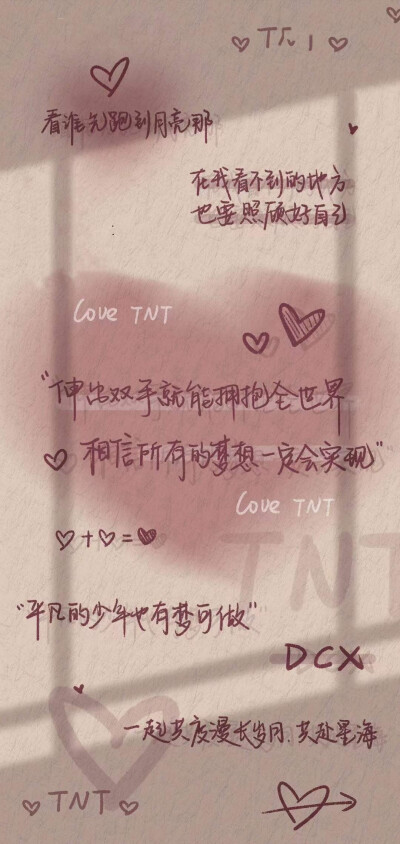 TNT
看谁先跑到月亮那
在我看不到的地方
也要照顾好自己
Love TNT
"伸出双手就能拥抱全世界
相信所有的梦想一定会实现"
Love TNT
+ =
TNT
"平凡的少年也有梦可做"
DCX
一起共度漫长岁月.共赴星海
TNT